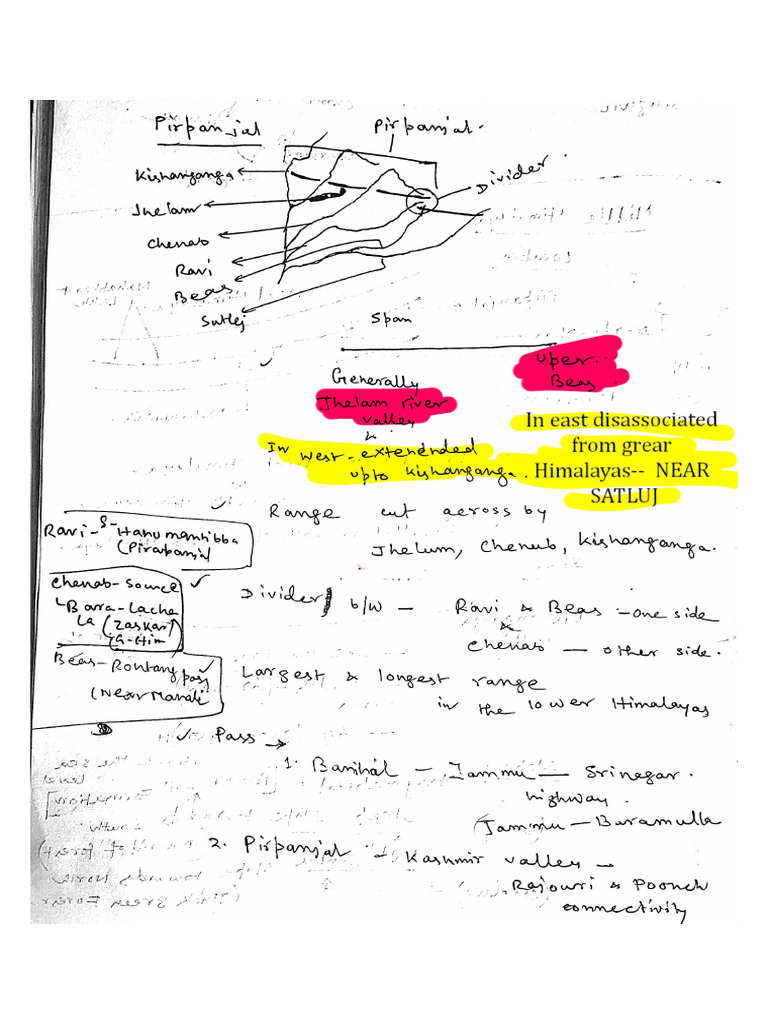 Pirpanjal
Pirpanjal.
Kishanganga
Divider.
Jhelam
Chenab
Ravi
Beas
Sutlej
Span
Generally
Jhelam river
valley
&
In west-extendnded
upto kishanganga.
Uper..
Beas
In east disassociated
from grear
Himalayas-- NEAR
SATLUJ
Range cut across by
Jhelum, Chenub, Kishanganga.
Ravi-S-Hanumantibba
(Pirapanjal
Chenab-Source
Bara-Lacha
la (Zaskar/
G-Him
Beas-Rohtang pass
(Near Manali
Divider b/w - Ravi & Beas -one side
&
Chenab - other side.
Largest & longest range
in the lower Himalayas
Pass →
1. Banihal - Jammu - Srinagar.
highway.
(Jammu-Baramulla
2. Pirpanjal → Kashmir valley -
Rajouri & Poonch
connectivity